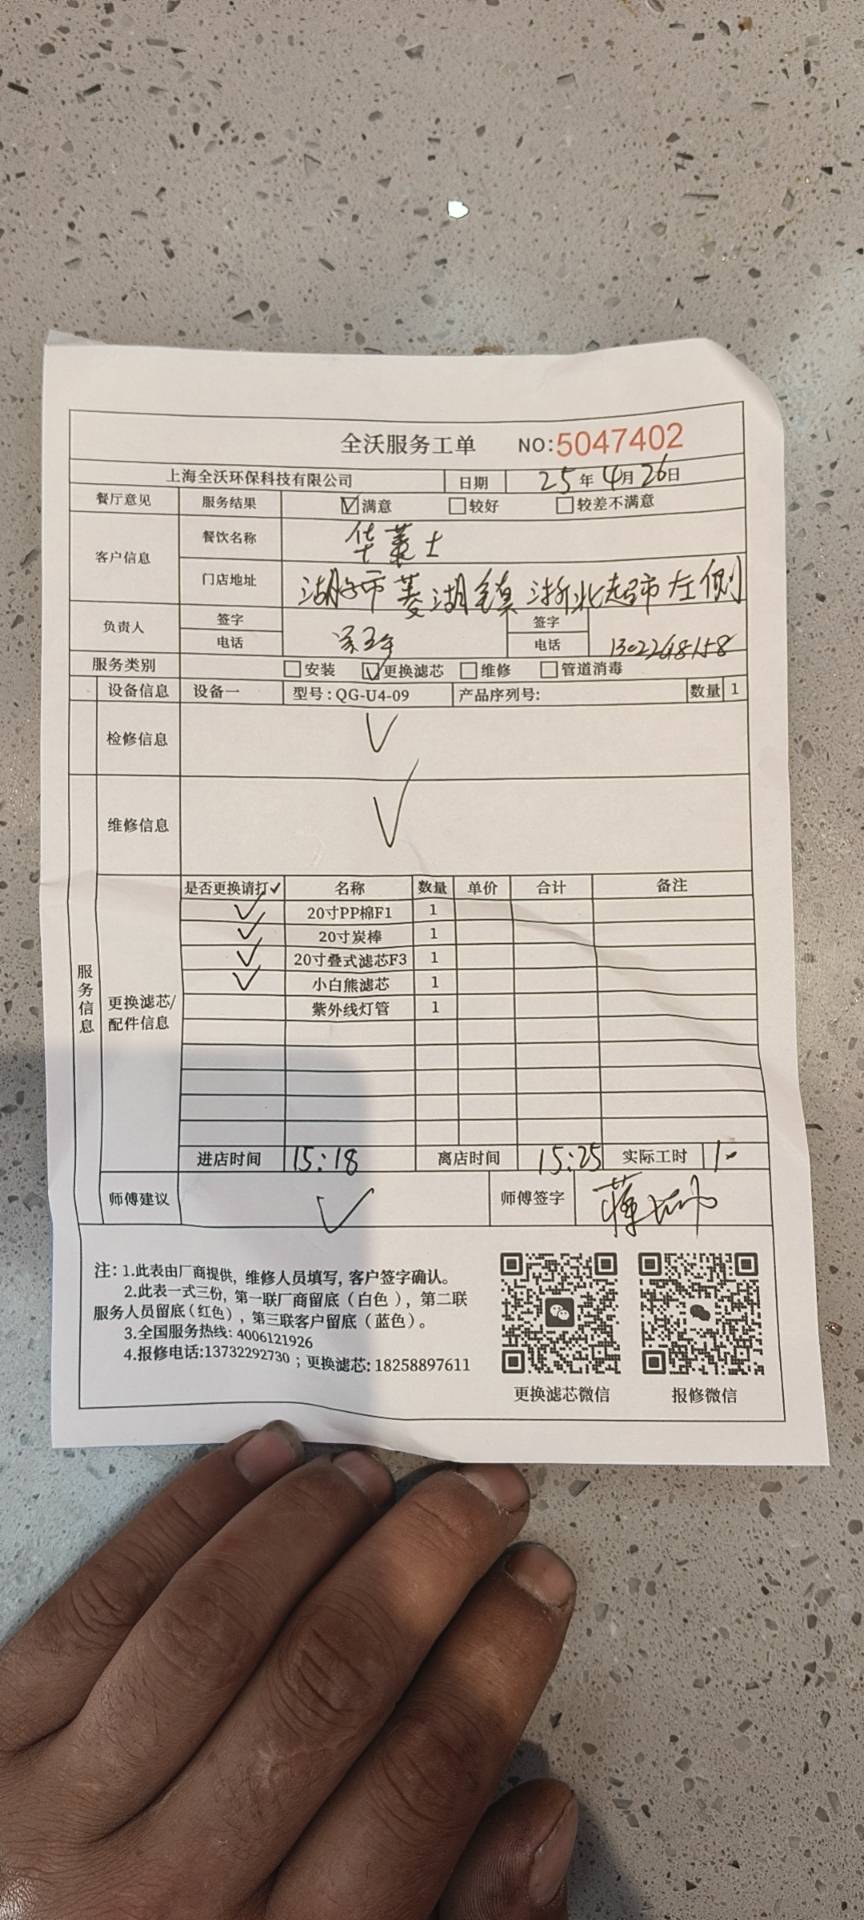 全沃服务工单 NO:5047402
上海全沃环保科技有限公司 日期 25年4月26日
餐厅意见 服务结果 ☑满意 □较好 □较差不满意
客户信息 餐饮名称 华莱士
门店地址 湖州市菱湖镇浙北超市左侧
负责人 签字 签字
电话 电话
服务类别 □安装 ☑更换滤芯 □维修 □管道消毒
设备信息 设备一 型号:QG-U4-09 产品序列号: 数量 1
检修信息 ✓
维修信息 ✓
服务信息
更换滤芯/配件信息
是否更换请打✓ 名称 数量 单价 合计 备注
✓ 20寸PP棉F1 1
✓ 20寸炭棒 1
✓ 20寸叠式滤芯F3 1
✓ 小白熊滤芯 1
紫外线灯管 1
进店时间 15:18 离店时间 15:25 实际工时
师傅建议 ✓ 师傅签字
注: 1.此表由厂商提供, 维修人员填写, 客户签字确认。
2.此表一式三份, 第一联厂商留底(白色), 第二联
服务人员留底(红色), 第三联客户留底(蓝色)。
3.全国服务热线: 4006121926
4.报修电话:13732292730 ; 更换滤芯: 18258897611
更换滤芯微信 报修微信